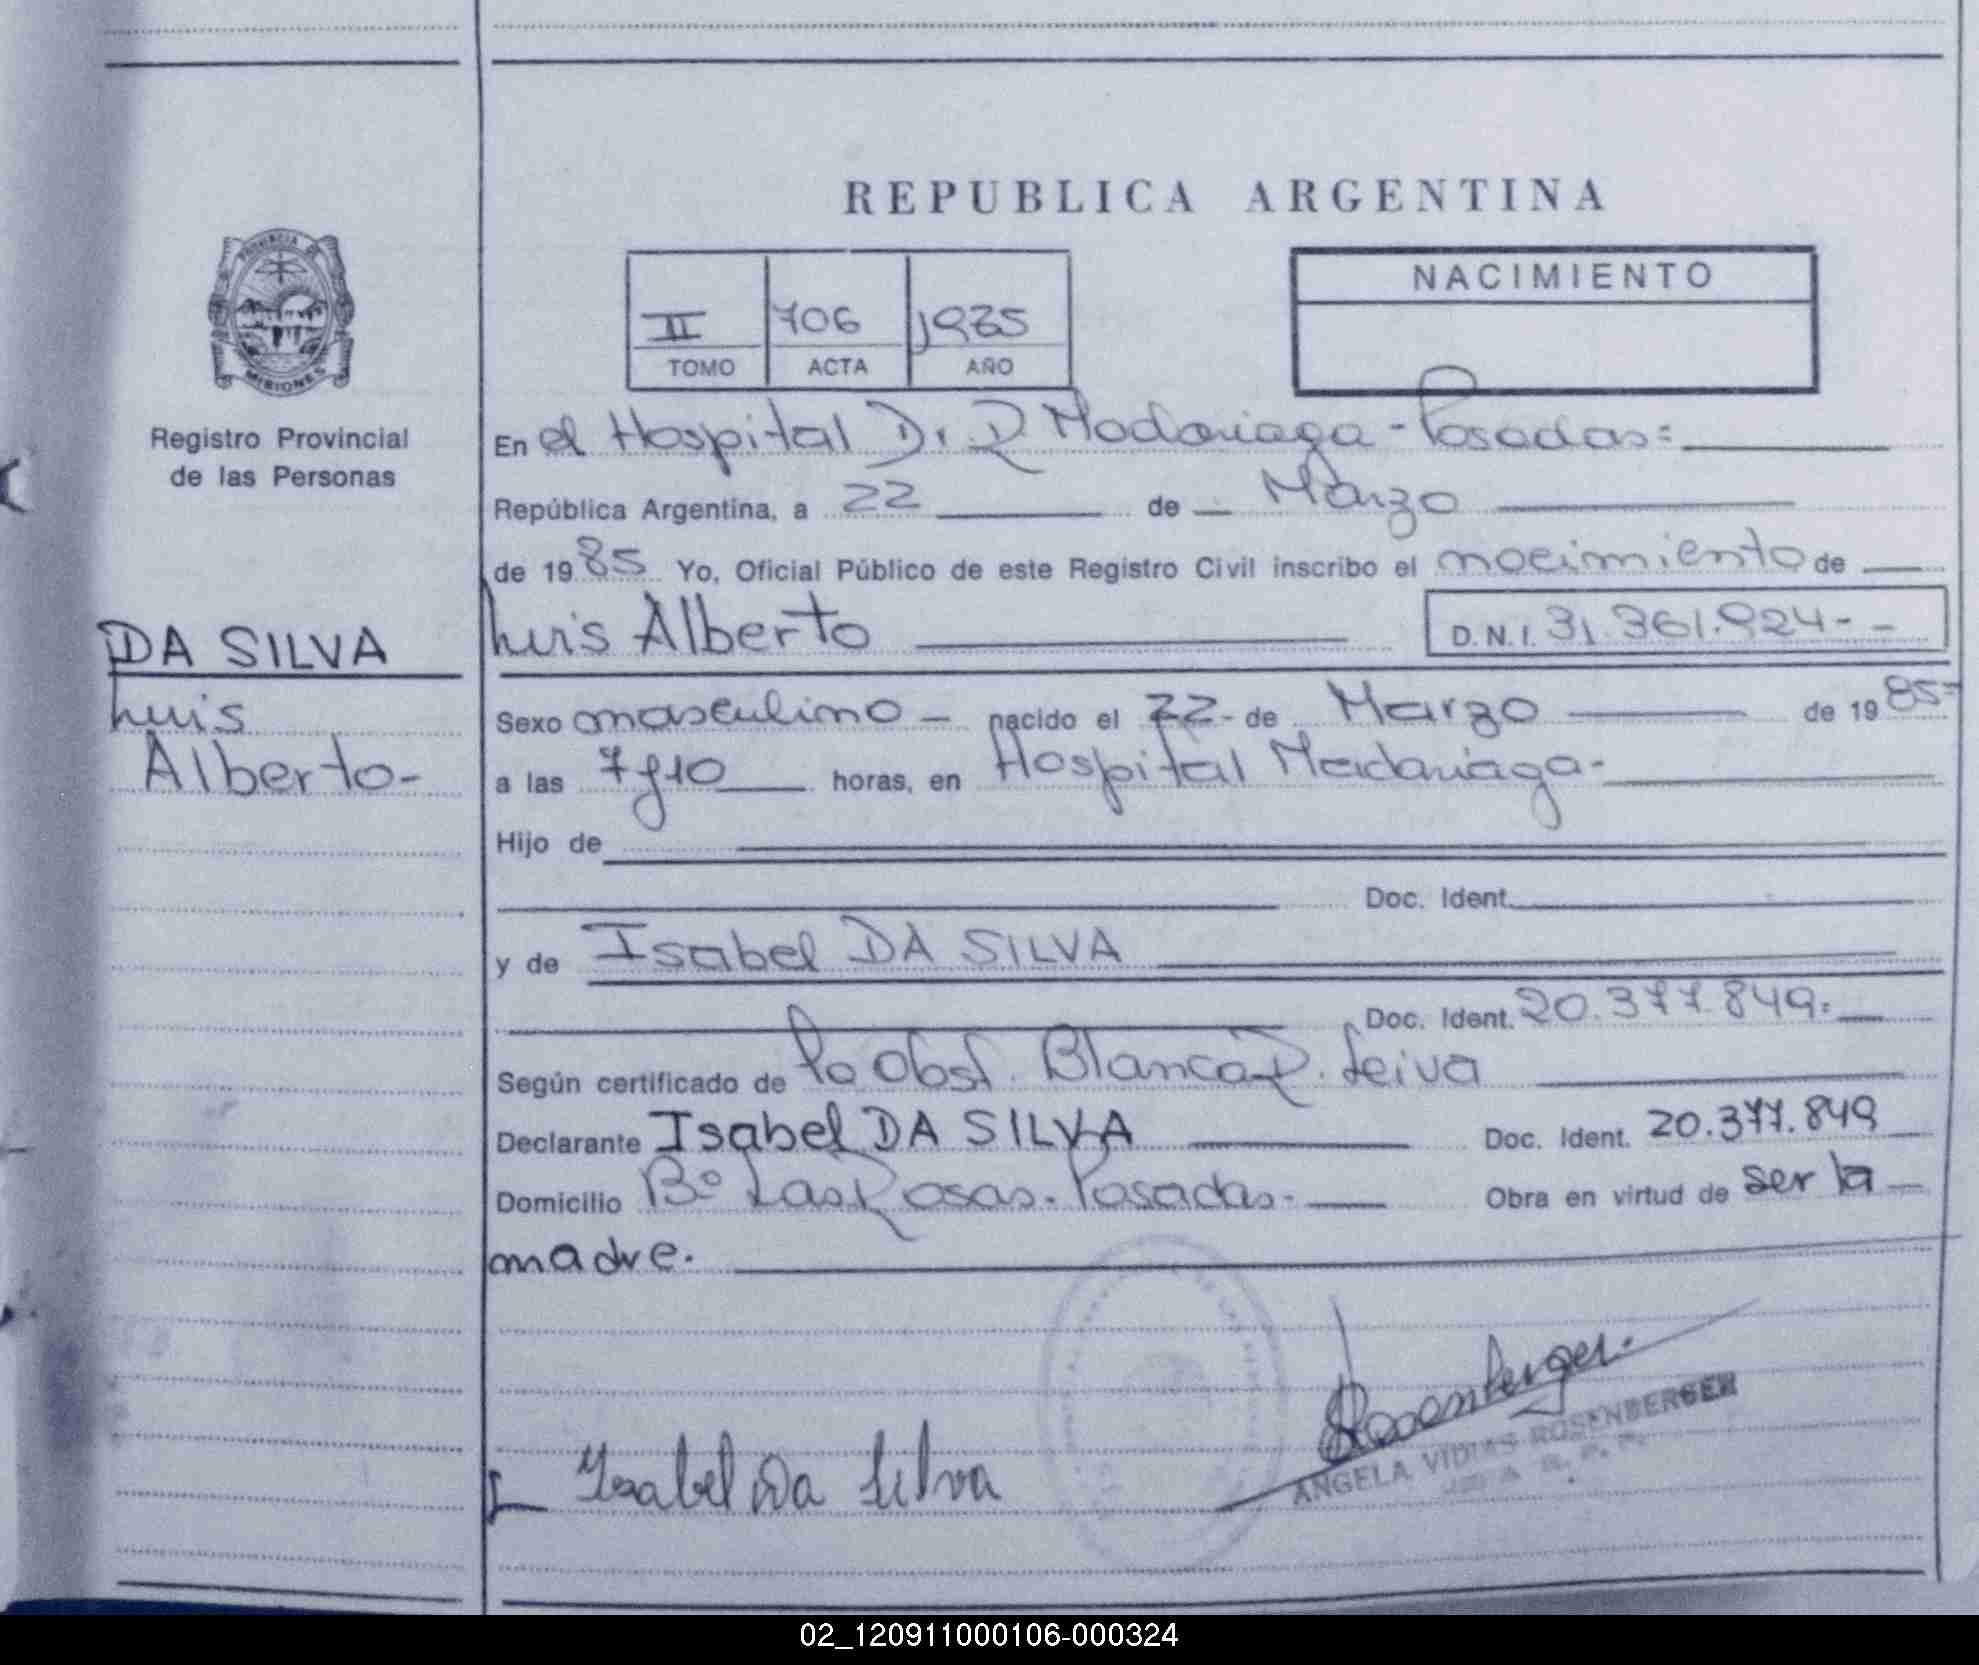 REPUBLICA ARGENTINA
PROVINCIA DE
MISIONES
Registro Provincial
de las Personas
II 706 1985
TOMO ACTA AÑO
NACIMIENTO
En el Hospital Dr. R Madariaga - Posadas =
República Argentina, a 22 de Marzo
de 1985 Yo, Oficial Público de este Registro Civil inscribo el nacimiento de
DA SILVA
Luis
Alberto-
Luis Alberto D.N.I. 31.361.924--
Sexo masculino - nacido el 22- de Marzo de 1985=
a las 7y10 horas, en Hospital Madariaga-
Hijo de
Doc. Ident.
y de Isabel DA SILVA
Doc. Ident. 20.377.849=
Según certificado de la Obst. Blanca R. Leiva
Declarante Isabel DA SILVA Doc. Ident. 20.377.849
Domicilio Bº Las Rosas. Posadas- Obra en virtud de ser la
madre.
Isabel Da Silva
Rosenberger
ANGELA ROSENBERGER
02_120911000106-000324